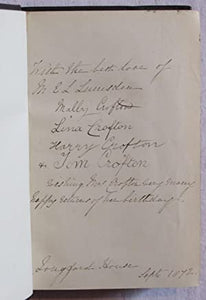 With the best love of
M E L Lumsden
Mally Crofton
Lina Crofton
Harry Crofton
& Tom Crofton
Wishing Mrs Crofton very many
happy returns of her birthday.
Longford House
Septr 1872